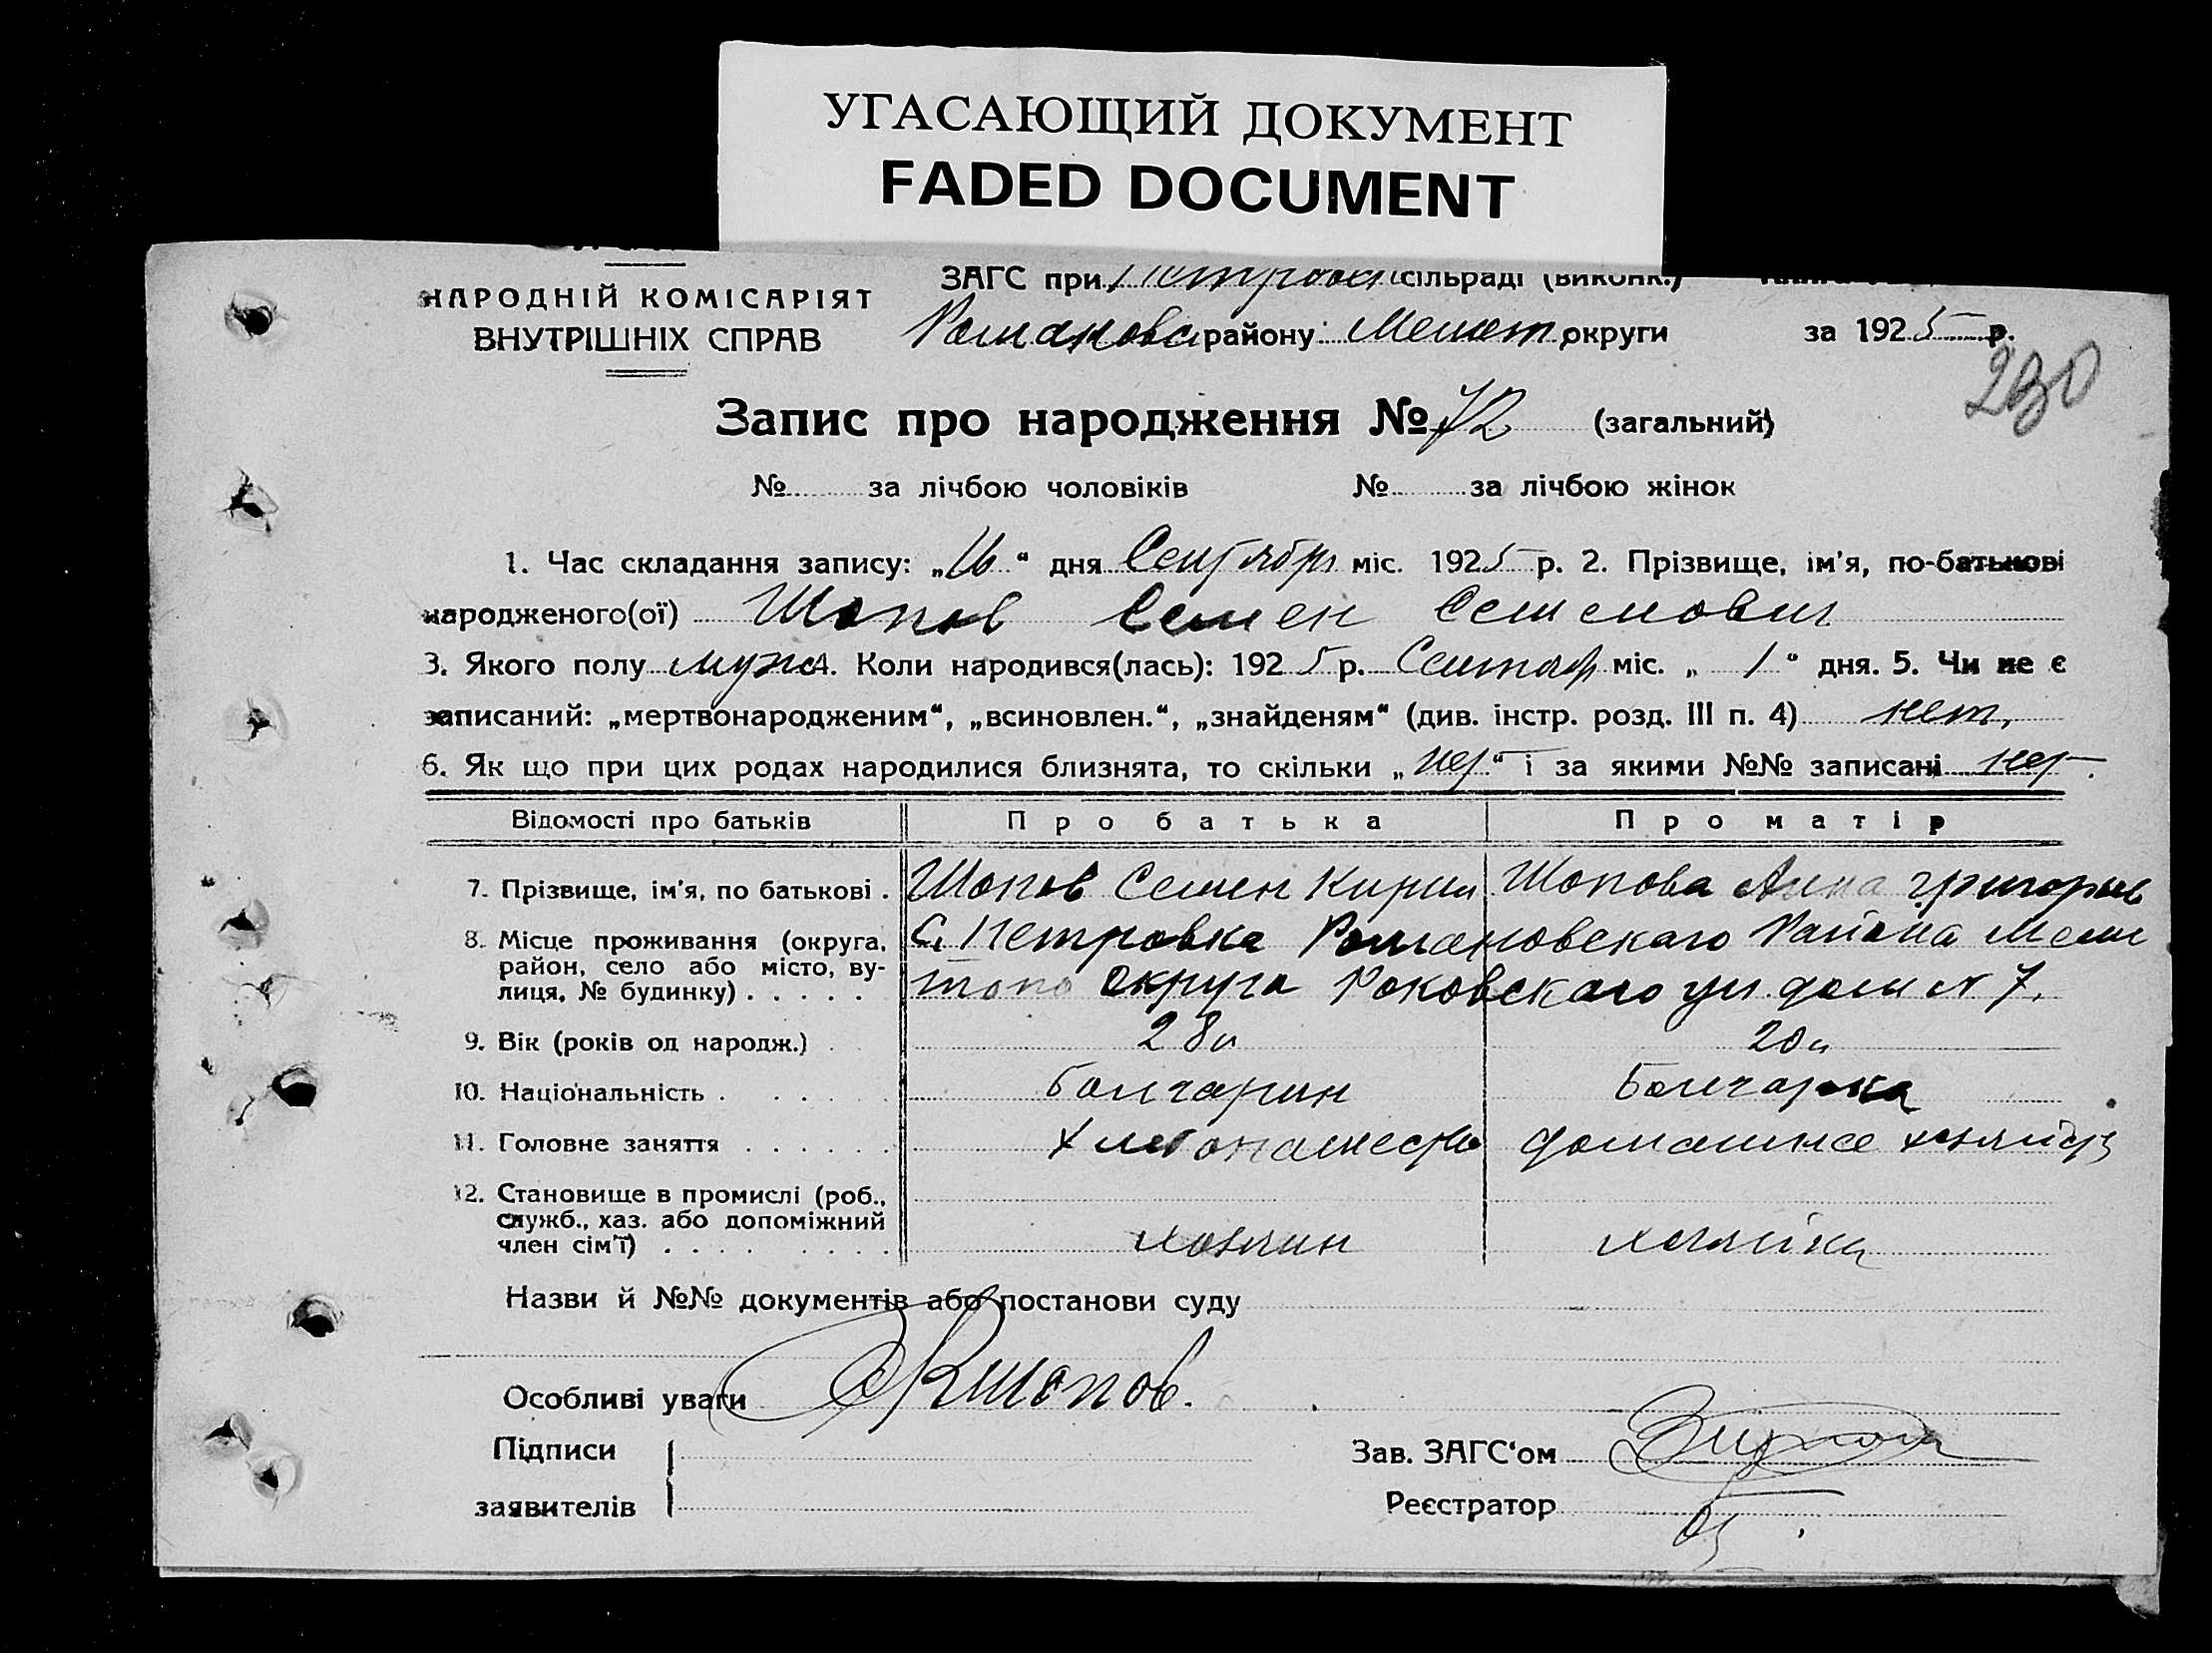 УГАСАЮЩИЙ ДОКУМЕНТ
FADED DOCUMENT
НАРОДНІЙ КОМІСАРІЯТ
ВНУТРІШНІХ СПРАВ
ЗАГС при Петровск сільраді (виконк.)
Романовск району Мелит округи за 1925 р.
230
Запис про народження № 72 (загальний)
№ за лічбою чоловіків № за лічбою жінок
1. Час складання запису: „16“ дня Сентября міс. 1925 р. 2. Прізвище, ім'я, по-батькові
народженого(ої) Шопов Семен Семенович
3. Якого полу муж 4. Коли народився(лась): 1925 р. Сентяб міс. „1“ дня. 5. Чи не є
записаний: „мертвонародженим“, „всиновлен.“, „знайденям“ (див. інстр. розд. III п. 4) нет,
6. Як що при цих родах народилися близнята, то скільки „нет“ і за якими №№ записані нет.
Відомості про батьків Про батька Про матір
7. Прізвище, ім'я, по батькові . Шопов Семен Кирил Шопова Анна Григорьев
8. Місце проживання (округа, район, село або місто, вулиця, № будинку) . . . . . С. Петровка Романовскаго Района Мели
топо округа Роковскаго ул. дом N 7.
9. Вік (років од народж.) 28 л 20 л
10. Національність . . . . . болгарин Болгарка
11. Головне заняття . . . . . . Хлебопашество домашнее хозяйств
12. Становище в промислі (роб.,
служб., хаз. або допоміжний
член сім'ї) . . . . . . . . хозяин хозяйка
Назви й №№ документів або постанови суду
Особливі уваги Шопов.
Підписи Зав. ЗАГС'ом
заявителів Реєстратор